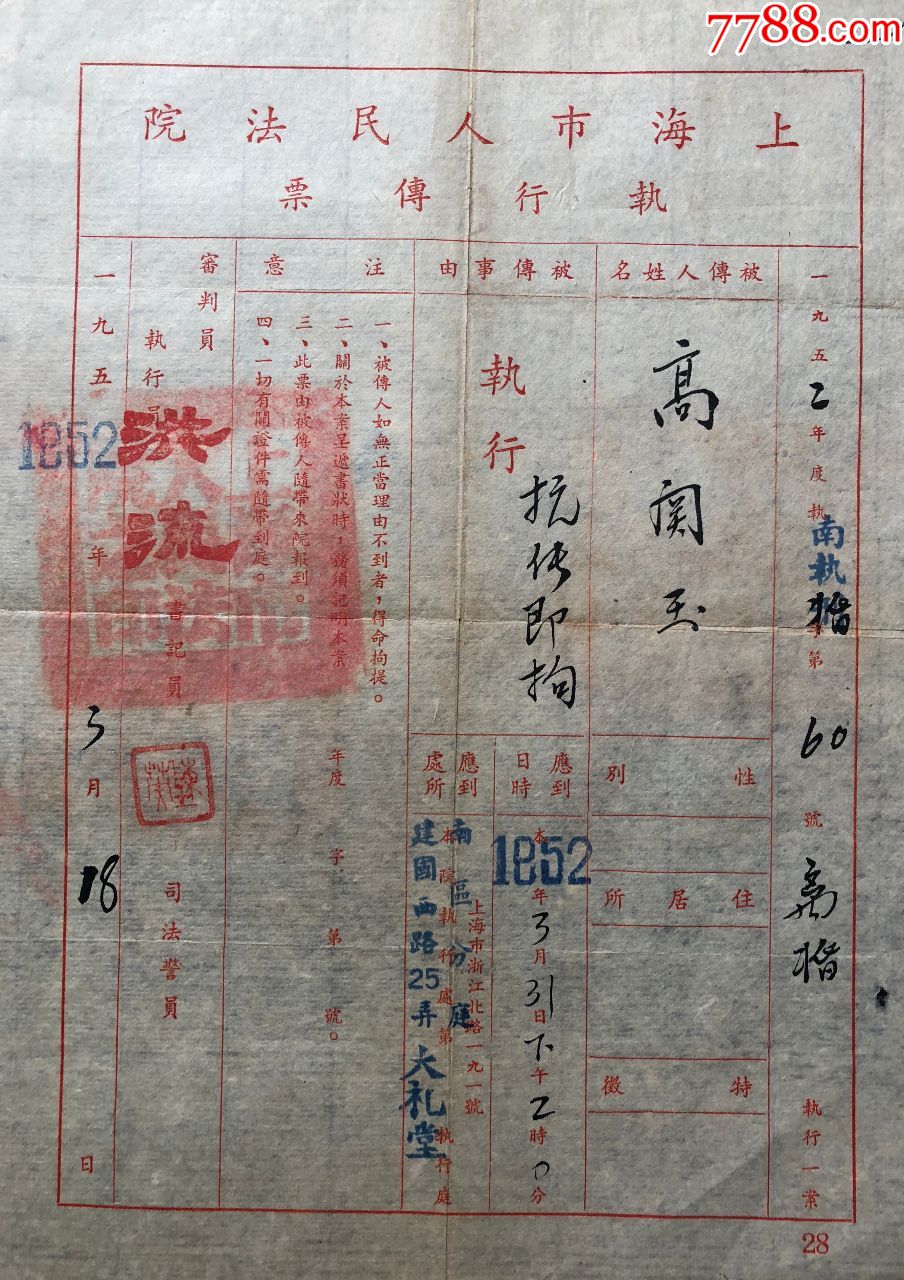 7788.com
上海市人民法院
執行傳票
一九五2年度執字第60號離婚執行一案
南执
婚
被傳人姓名
高関玉
性別
住居所
特徵
被傳事由
執行
抗传即拘
應到日時
本年3月31日下午2時0分
1952
應到處所
上海市浙江北路一九一號
本院執行處第 執行庭
南區分庭
建國西路25弄大礼堂
注意
一、被傳人如無正當理由不到者，得命拘提。
二、關於本案呈遞書狀時，務須記明本案 年度 字 第 號。
三、此票由被傳人隨帶來院報到。
四、一切有關證件需隨帶到庭。
審判員
執行員
洪流
書記員
司法警員
一九五 年3月18日
1952
28